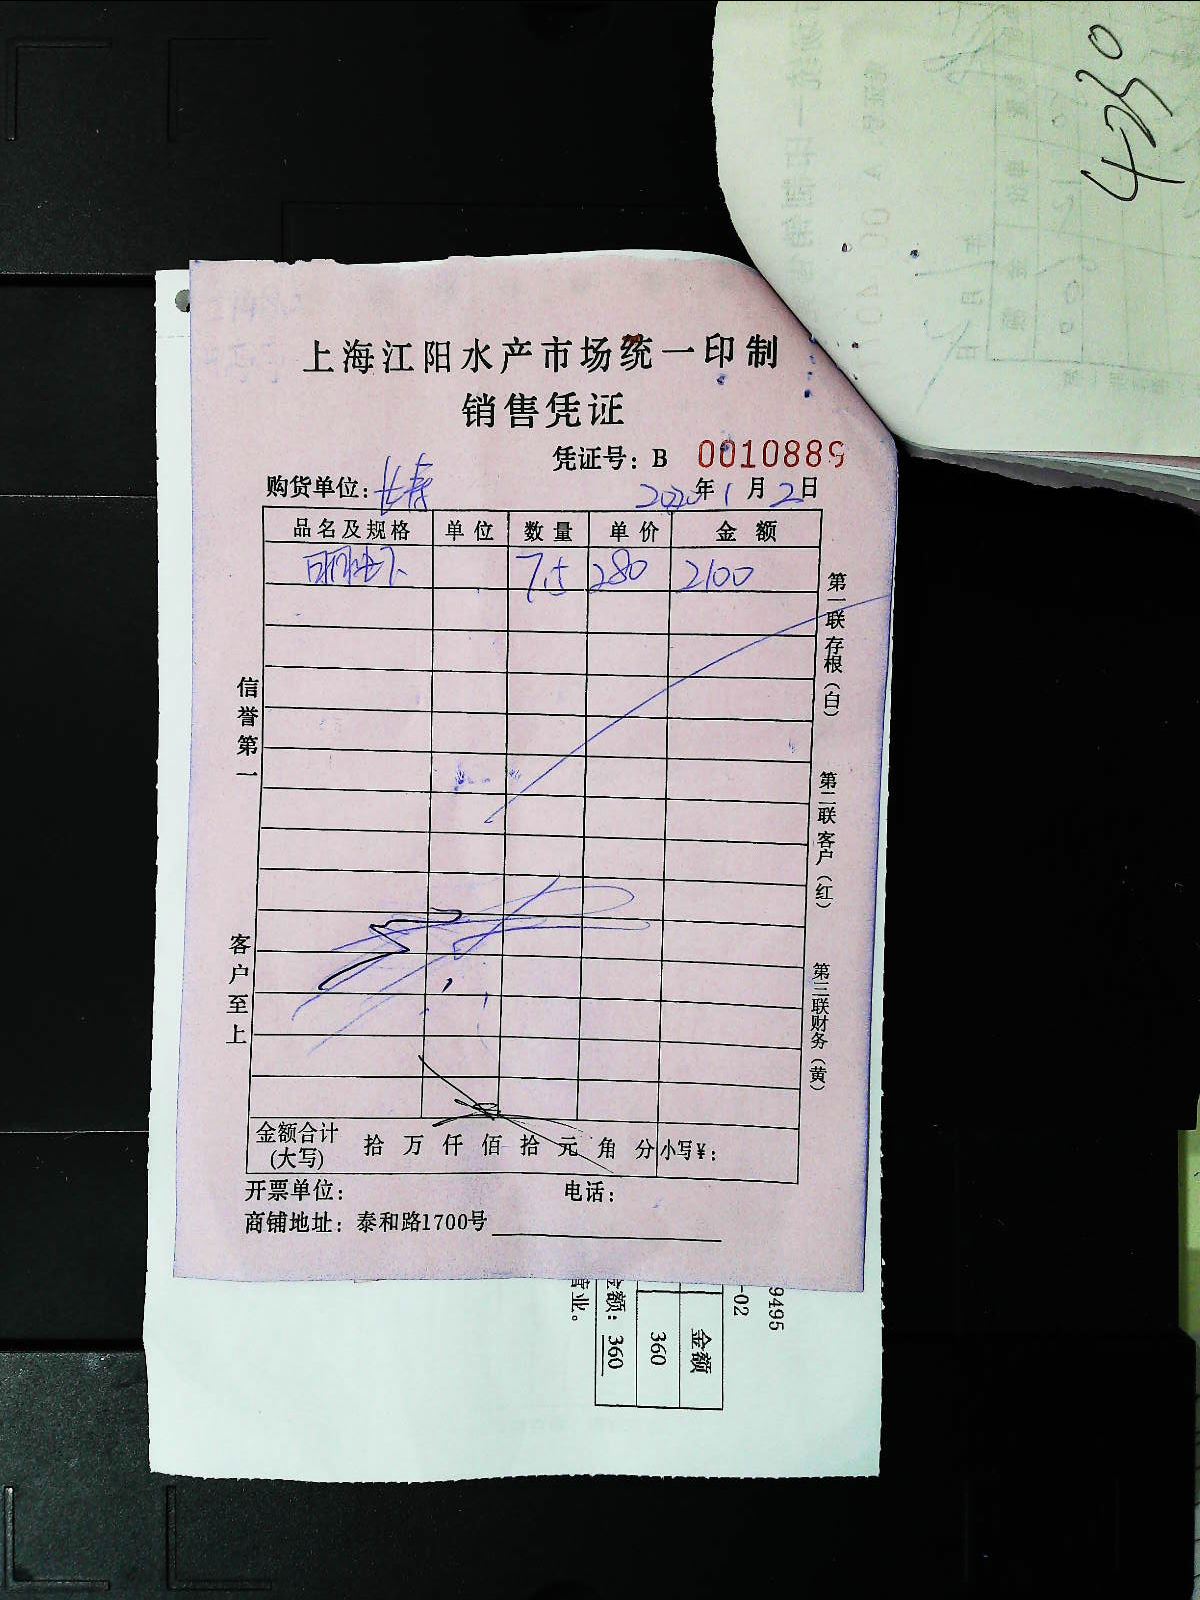 430
上海江阳水产市场统一印制
销售凭证
凭证号：B 0010889
购货单位：长寿 2020年1月2日
品名及规格 单位 数量 单价 金额
明虾 7.5 280 2100
信誉第一
客户至上
第一联存根（白）
第二联客户（红）
第三联财务（黄）
金额合计(大写) 拾 万 仟 佰 拾 元 角 分 小写￥：
开票单位： 电话：
商铺地址：泰和路1700号
9495
-02
金额
360
金额：360
营业。